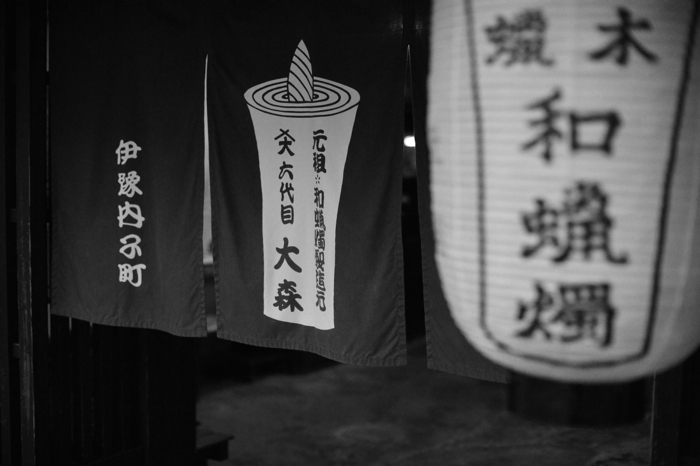 木蠟
和蠟燭
元祖 和蝋燭製造元
六代目 大森
伊豫内子町